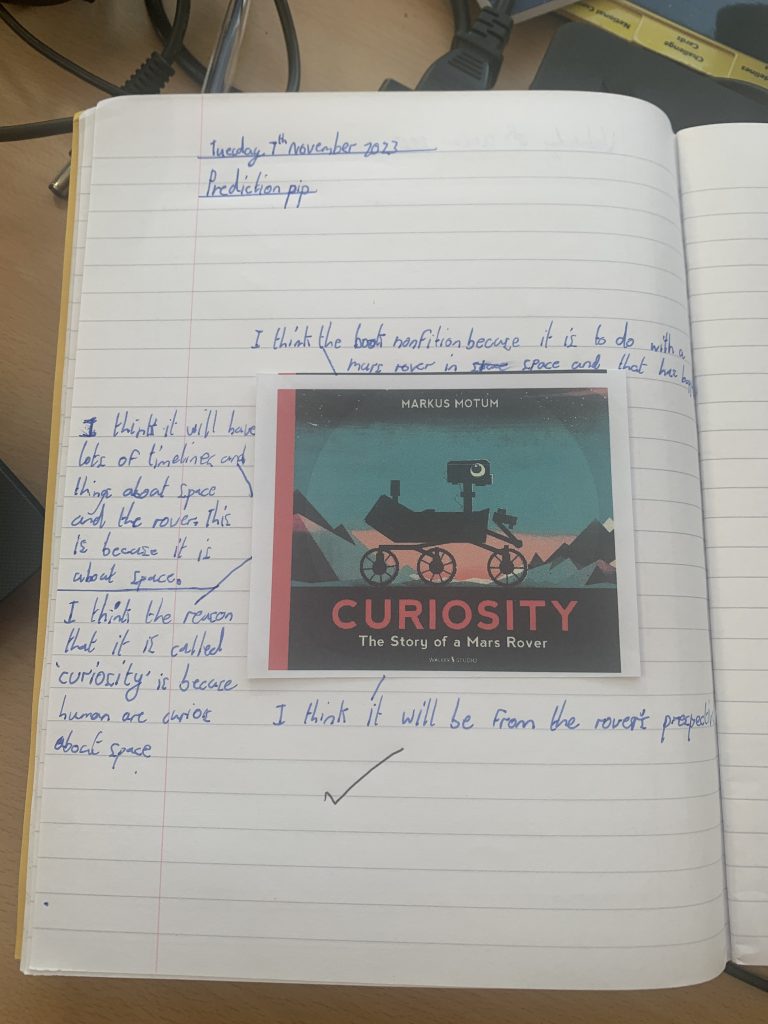 National Cur
Challenge
Cards
idelines
Tuesday 7th November 2023
Prediction pip
I think the book nonfition becuase it is to do with a
mars rover in space and that has
I think it will have
lots of timelines and
things about space
and the rover. This
is because it is
about space.
I think the reason
that it is called
'curiosity' is becuase
human are curios
about space
MARKUS MOTUM
CURIOSITY
The Story of a Mars Rover
WALKER STUDIO
I think it will be from the rover's prespectiv